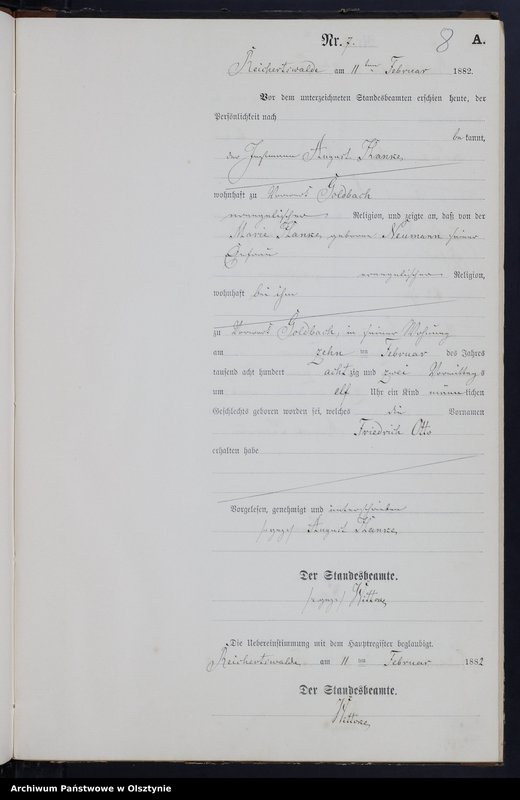 Nr. 7. 8 A.
Reichertswalde am 11ten Februar 1882.
Vor dem unterzeichneten Standesbeamten erschien heute, der
Persönlichkeit nach
be kannt,
der Instmann August Kanke,
wohnhaft zu Vorwerk Goldbach
evangelischer Religion, und zeigte an, daß von der
Marie Kanke geborne Neumann seiner
Ehefrau
evangelischer Religion,
wohnhaft bei ihm
zu Vorwerk Goldbach, in seiner Wohnung
am zehn ten Februar des Jahres
tausend acht hundert acht zig und zwei Vormittags
um elf Uhr ein Kind männlichen
Geschlechts geboren worden sei, welches die Vornamen
Friedrich Otto
erhalten habe
Vorgelesen, genehmigt und unterschrieben
/:gez:/ August Kanke,
Der Standesbeamte.
/:gez:/
Die Uebereinstimmung mit dem Hauptregister beglaubigt.
Reichertswalde am 11 ten Februar 1882
Der Standesbeamte.
Archiwum Państwowe w Olsztynie